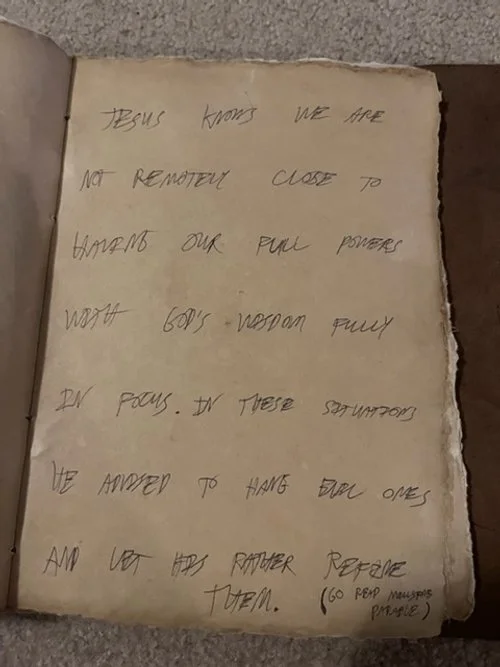 JESUS KNOWS WE ARE
NOT REMOTELY CLOSE TO
HAVING OUR FULL POWERS
WITH GOD'S WISDOM FULLY
IN FOCUS. IN THESE SITUATIONS
HE ADVISED TO HANG EVIL ONES
AND LET HIS FATHER REFINE
THEM. (GO READ
PARABLE)